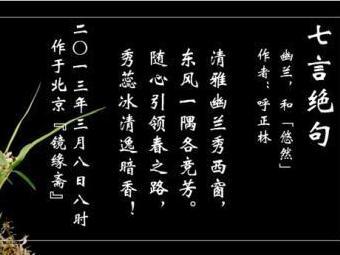 七言绝句
幽兰,和「悠然」
作者：呼正林
清雅幽兰秀西窗，
东风一隅各竞芳。
随心引领春之路，
秀蕊冰清逸暗香！
二〇一三年三月八日八时
作于北京『镜缘斋』